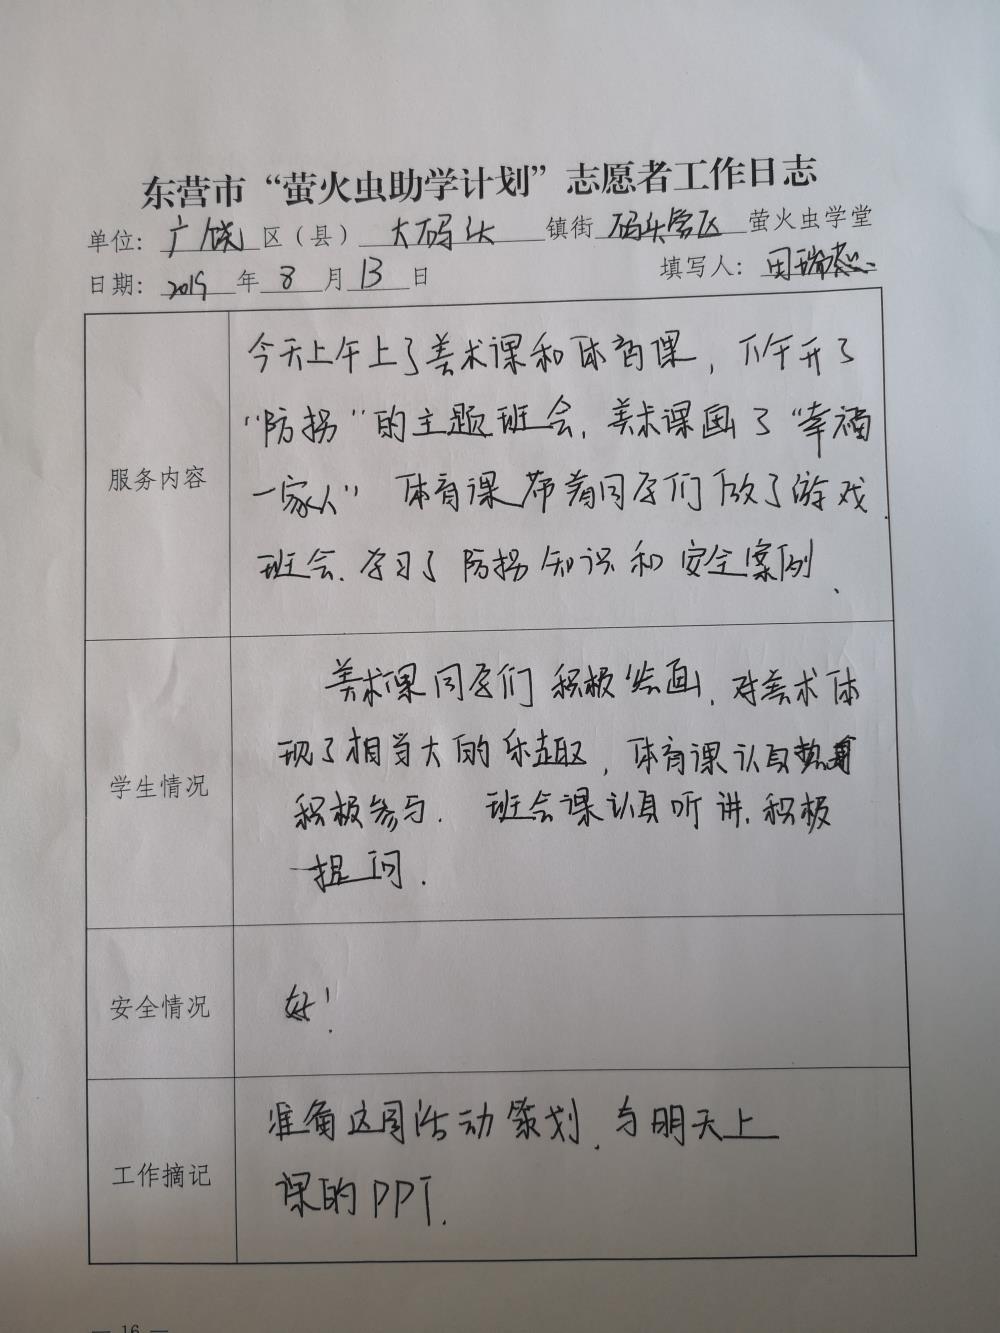 东营市“萤火虫助学计划”志愿者工作日志
单位：广饶区（县）大码头镇街码头学区萤火虫学堂
日期：2019年8月13日 填写人：田瑞
服务内容
今天上午上了美术课和体育课，下午开了
“防拐”的主题班会，美术课画了“幸福
一家人” 体育课带着同学们做了游戏.
班会、学习了防拐知识和安全案例、
学生情况
美术课同学们积极绘画，对美术体
现了相当大的乐趣，体育课认真
积极参与. 班会课认真听讲，积极
提问.
安全情况
好！
工作摘记
准备这周活动策划、与明天上
课的PPT.
— 16 —